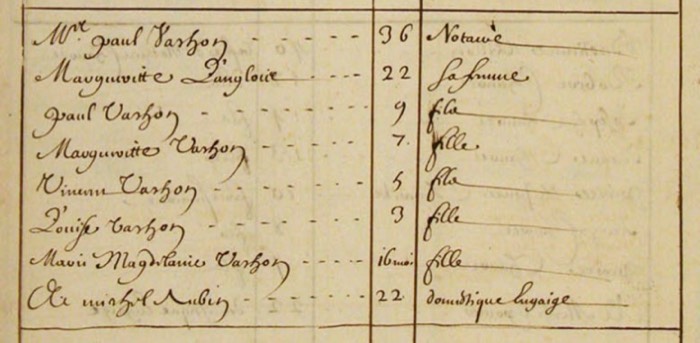 Mre paul Vachon 36 Notaire
Margueritte Langlois 22 sa femme
paul Vachon 9 fils
Margueritte Vachon 7. fille
Vincent Vachon 5 fils
Louise Vachon 3 fille
Marie Magdelaine Vachon 16 mois fille
michel Aubin 22 domestique Engaigé